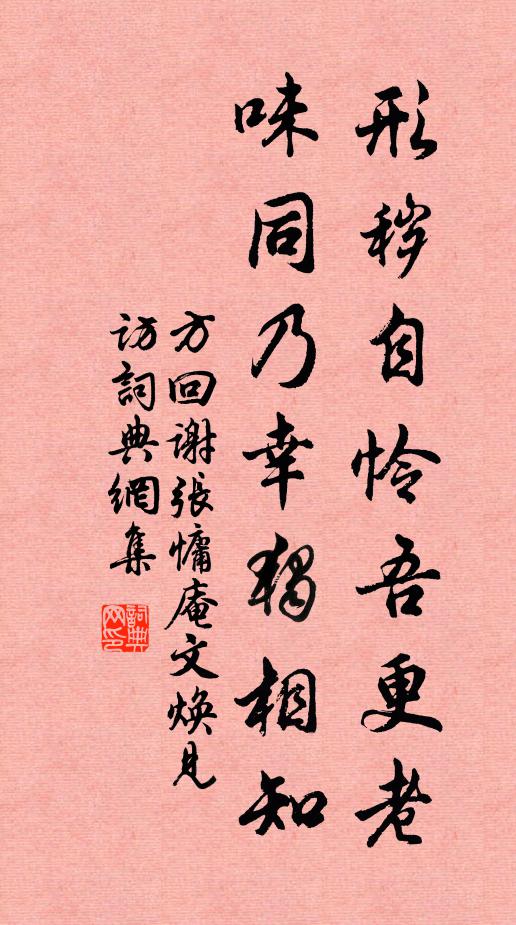 形秽自怜吾更老
味同乃幸独相知
方回谢張慵庵文焕見
訪詞典網集
詞典
网印